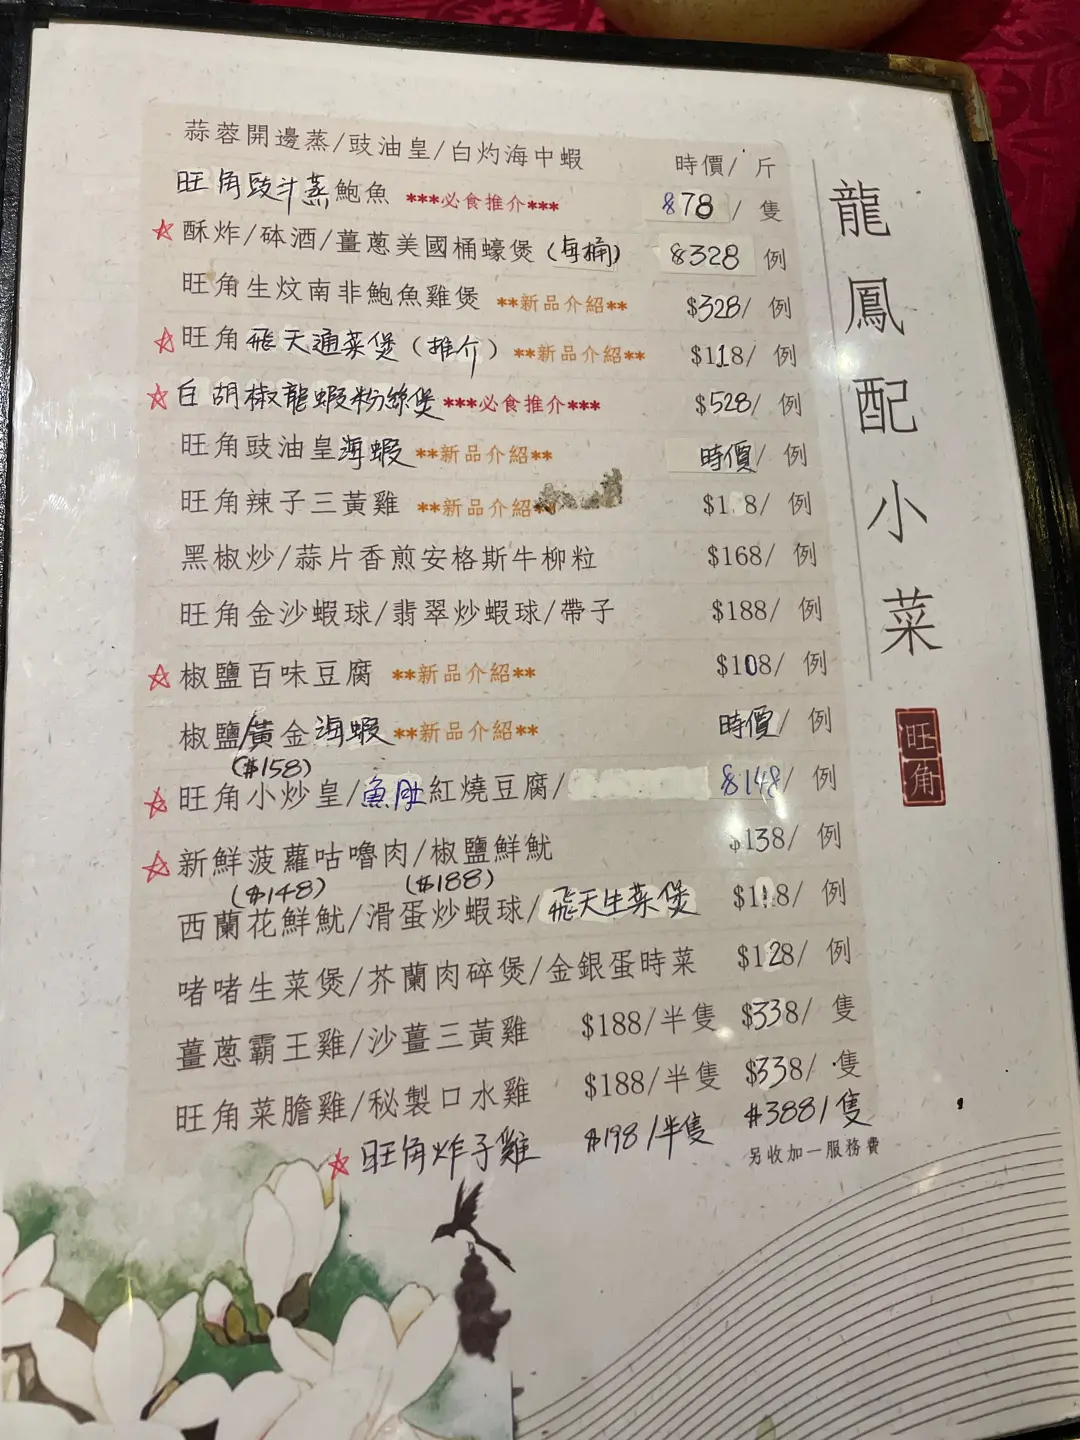 蒜蓉開邊蒸/豉油皇/白灼海中蝦 時價/ 斤
旺角豉汁蒸鮑魚 ***必食推介*** $78 / 隻
☆酥炸/砵酒/薑蔥美國桶蠔煲(每桶) $328 例
旺角生炆南非鮑魚雞煲 **新品介紹** $328/ 例
☆旺角飛天通菜煲(推介) **新品介紹** $118/ 例
☆白胡椒龍蝦粉絲煲***必食推介*** $528/ 例
旺角豉油皇海蝦**新品介紹** 時價/ 例
旺角辣子三黃雞 **新品介紹** $1 8/ 例
黑椒炒/蒜片香煎安格斯牛柳粒 $168/ 例
旺角金沙蝦球/翡翠炒蝦球/帶子 $188/ 例
☆椒鹽百味豆腐 **新品介紹** $108/ 例
椒鹽/黃金海蝦**新品介紹** 時價/ 例
($158)
☆旺角小炒皇/魚肚紅燒豆腐/ $148/ 例
☆新鮮菠蘿咕嚕肉/椒鹽鮮魷 $138/ 例
($148) ($188)
西蘭花鮮魷/滑蛋炒蝦球/飛天生菜煲 $118/ 例
啫啫生菜煲/芥蘭肉碎煲/金銀蛋時菜 $128/ 例
薑蔥霸王雞/沙薑三黃雞 $188/半隻 $338/ 隻
旺角菜膽雞/秘製口水雞 $188/半隻 $338/ 隻
☆旺角炸子雞 $198/半隻 $388/隻
另收加一服務費
龍鳳配小菜
旺角